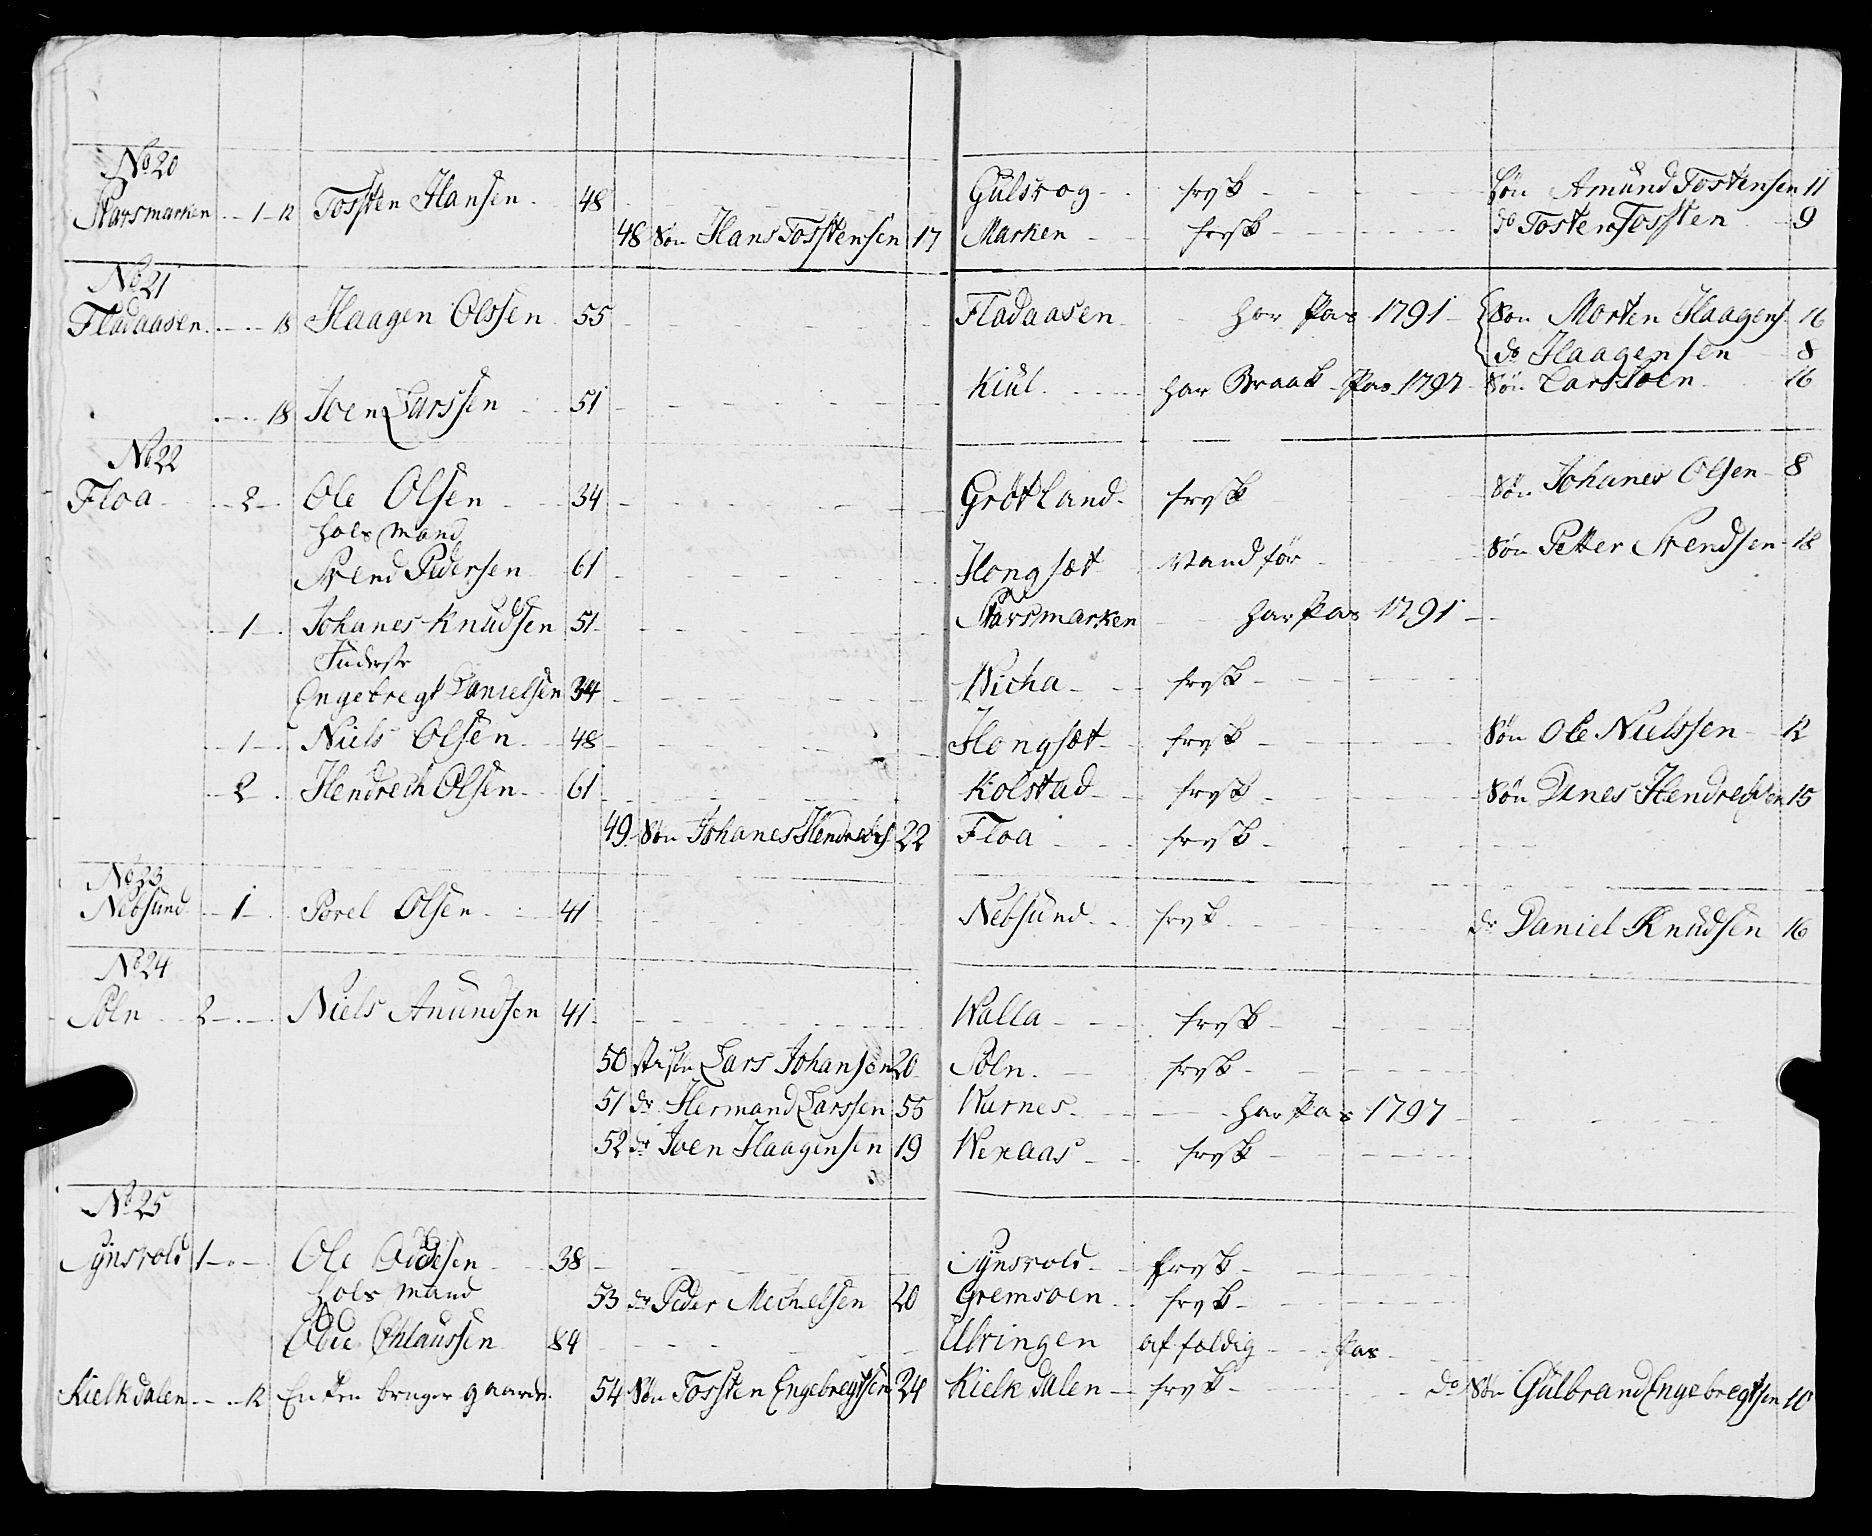 No 20
Starsmarken 1 12 Tossten Hansen 48 Gulsvog frisk Søn Amund Tostensen 11
48 Søn Hans Tosstensen 17 Marken frisk do Tosten Tossten 9
No 21
Fladaasen 18 Haagen Olssen 55 Fladaasen har Pas 1791 Søn Morten Haagens 16
do Haagensen 8
18 Joen Larssen 51 Kiul har Braak Pas 1797 Søn Lars Joen 16
No 22
Floa 2 Ole Olsen 34 Grøtland frisk Søn Johanes Olsen 8
Hols Mand
Svend Pedersen 61 Hongset Vandfør Søn Petter Svendsen 18
1 Johanes Knudsen 51 Starsmarken har Pas 1791
Inderste
Engebregt Danielsen 34 Wicha frisk
1 Niels Olsen 48 Hongset frisk Søn Ole Nielssen 12
2 Hendrech Olsen 61 Kolstad frisk Søn Enes Hendrechsen 15
49 Søn Johanes Hendrechs 22 Floa frisk
No 23
Nebsund 1 Porel Olsen 41 Nebsund frisk do Daniel Knudsen 16
No 24
Søln 2 Niels Amundsen 41 Walla frisk
50 Stifsøn Lars Johansen 20 Søln frisk
51 dr Hermand Larssen 55 Wurnes har Pas 1797
52 dr Joen Haagensen 19 Wexaas frisk
No 25
Synsvold 1 Ole Oddesen 38 Synsvold frisk
Hols Mand 53 dr Peder Mechelsen 20 Gremsoen frisk
Odde Chlaussen 84 Ulvringen affældig Pas
Kielkdalen 12 Enken bruger gaarden 54 Søn Tossten Engebregtsen 24 Kielkdalen frisk do Søn Gulbrand Engebregtsen 10